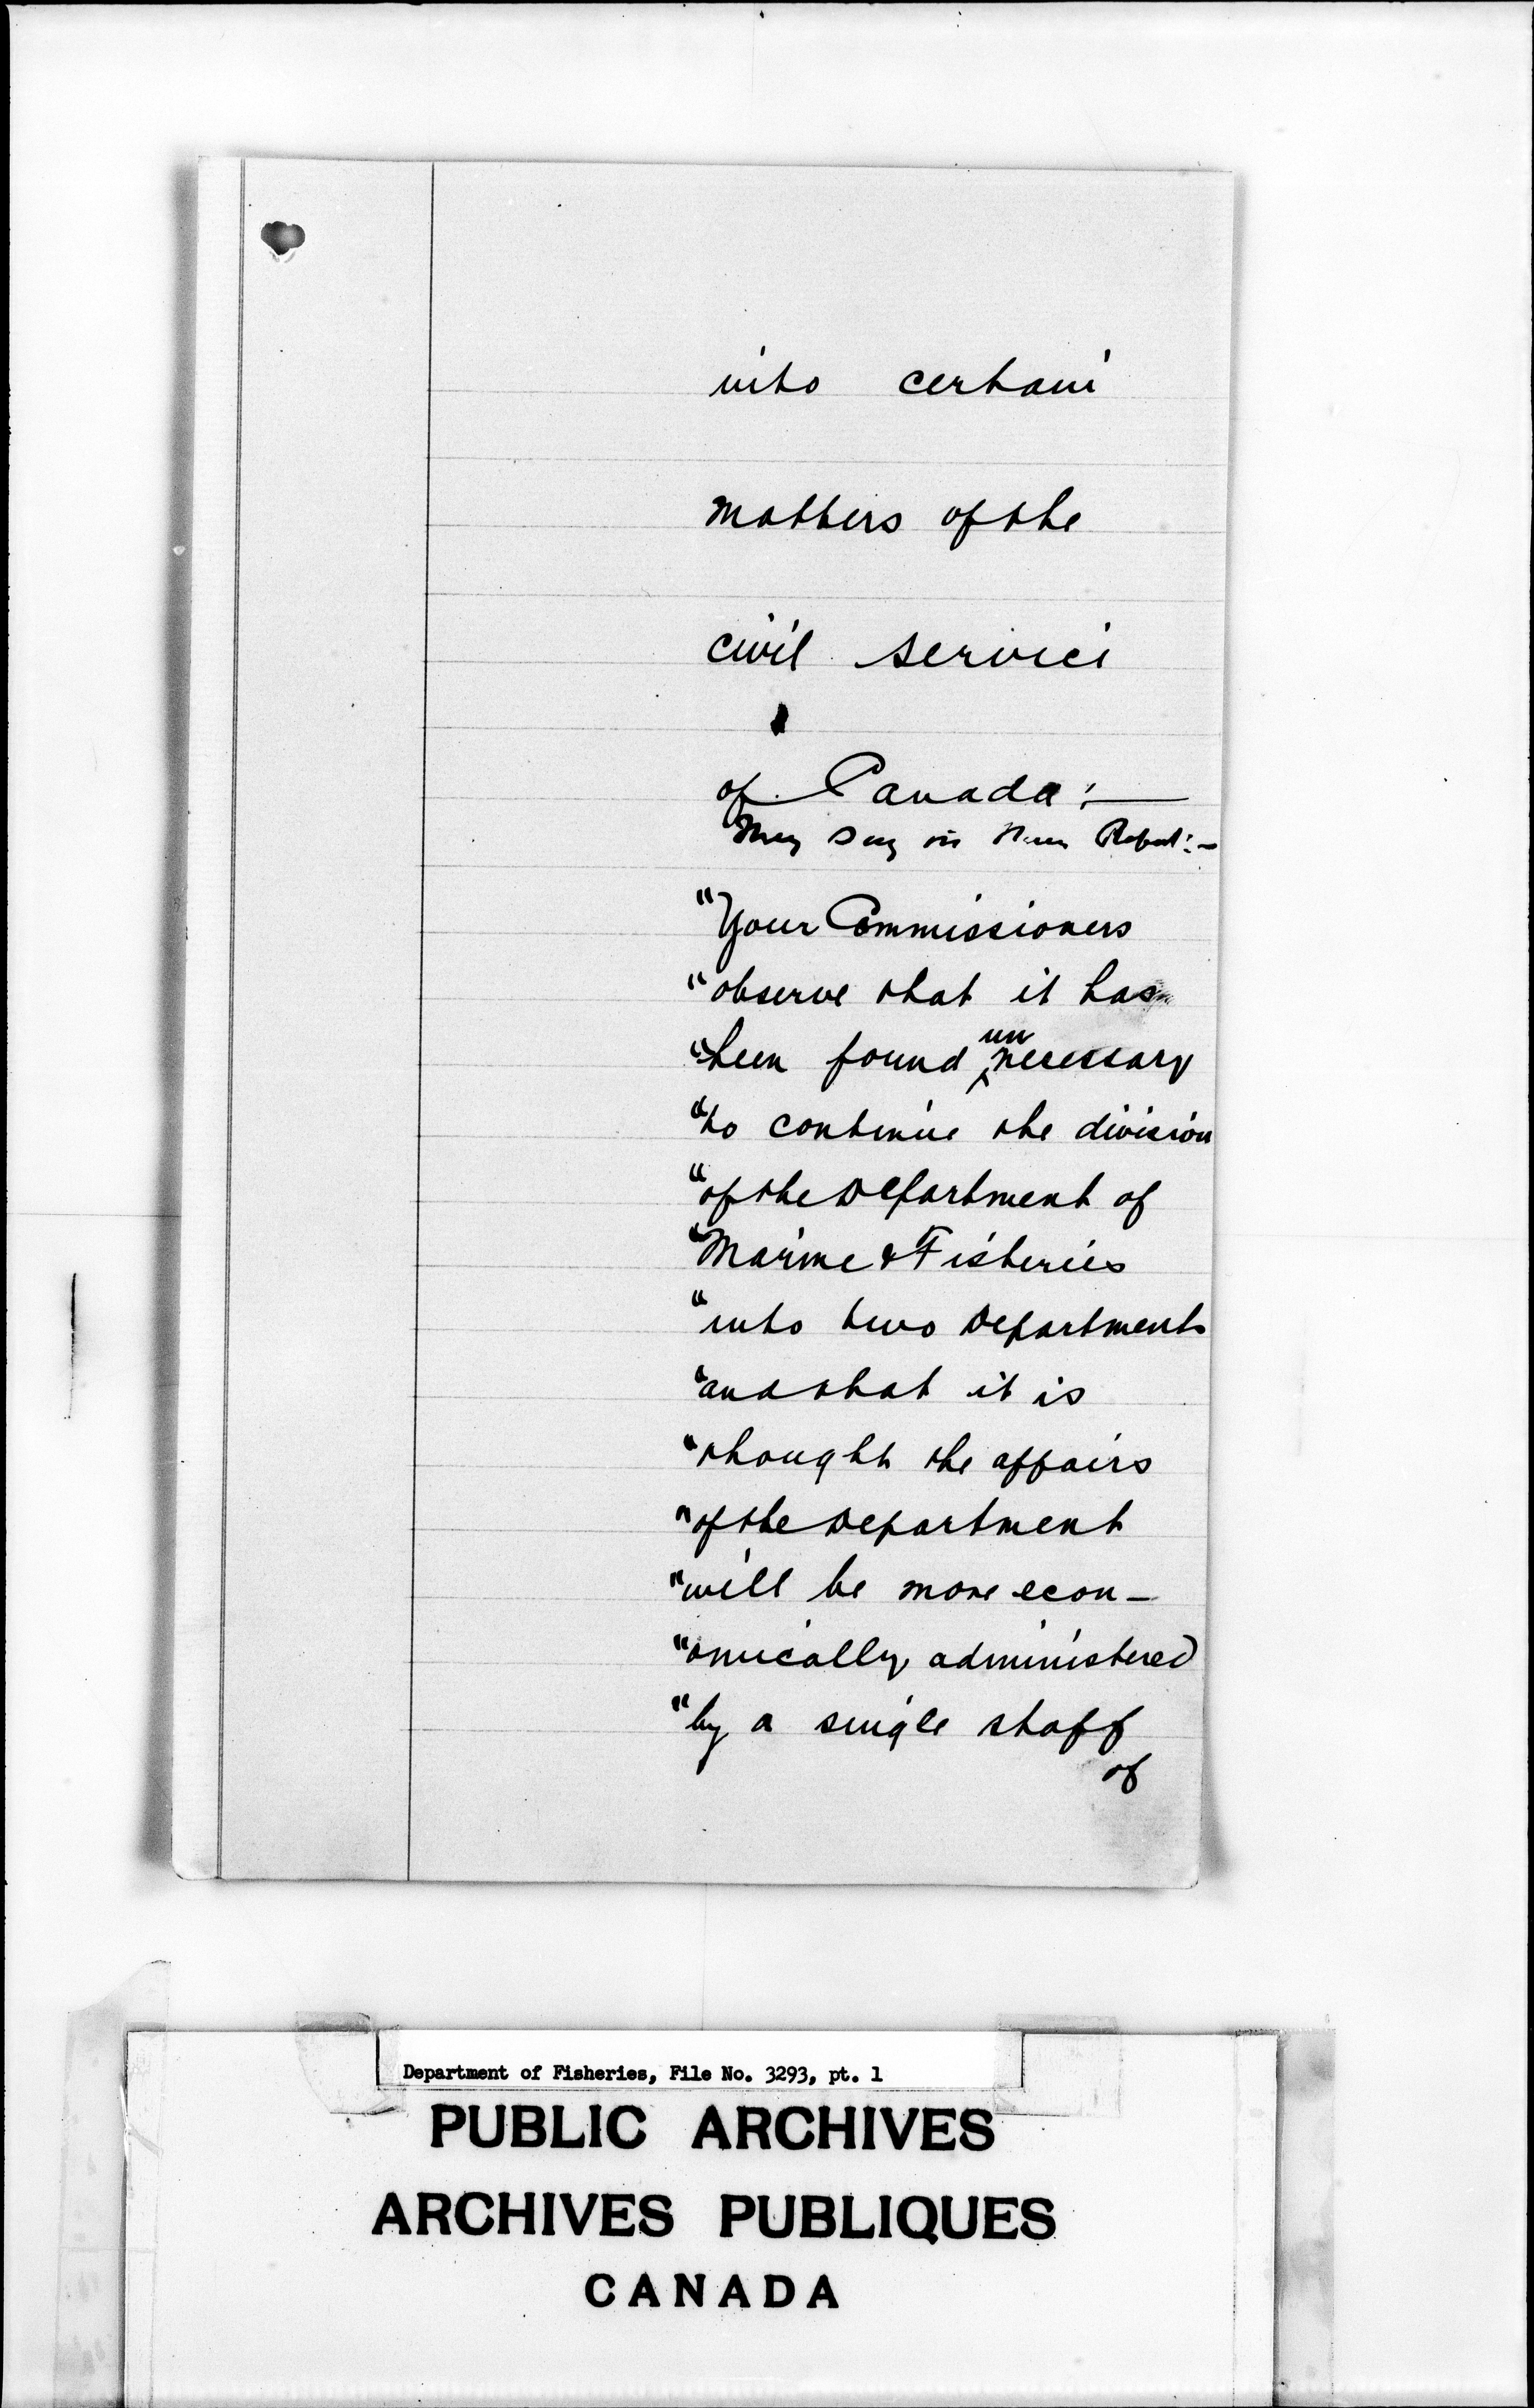 into certain
matters of the
civil service
of Canada:—
They say in their Report:—
"Your Commissioners
"observe that it has
"been found unnecessary
"to continue the division
"of the Department of
"Marine & Fisheries
"into two Departments
"and that it is
"thought the affairs
"of the Department
"will be more econ-
"omically administered
"by a single staff
of
Department of Fisheries, File No. 3293, pt. 1
PUBLIC ARCHIVES
ARCHIVES PUBLIQUES
CANADA